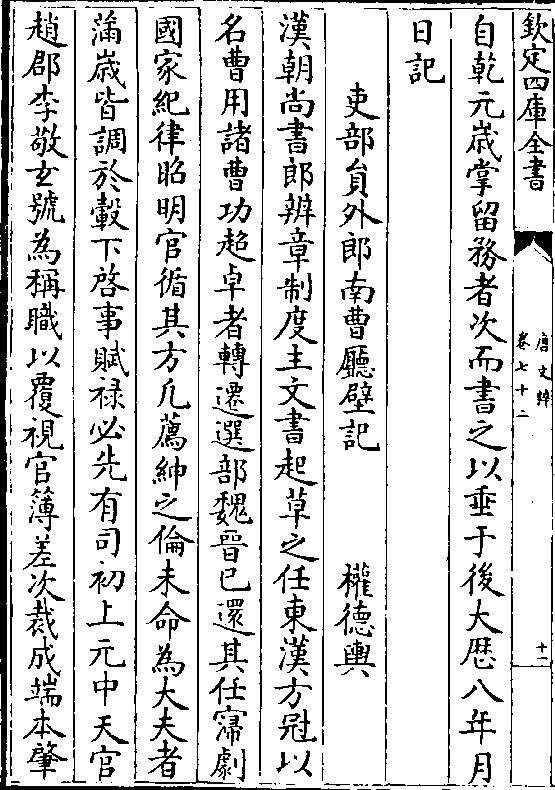 欽定四庫全書
唐文粹
卷七十二
十一
自乾元歳掌留務者次而書之以垂于後大厯八年月
日記
吏部貟外郎南曹廳壁記 權德輿
漢朝尚書郎辨章制度主文書起草之任東漢方冠以
名曹用諸曹功超卓者轉遷選部魏晉已還其任寖劇
國家紀律昭明官循其方凡薦紳之倫未命為大夫者
滿歳皆調於轂下啓事賦禄必先有司初上元中天官
趙郡李敬玄號為稱職以覆視官簿差次裁成端本肇